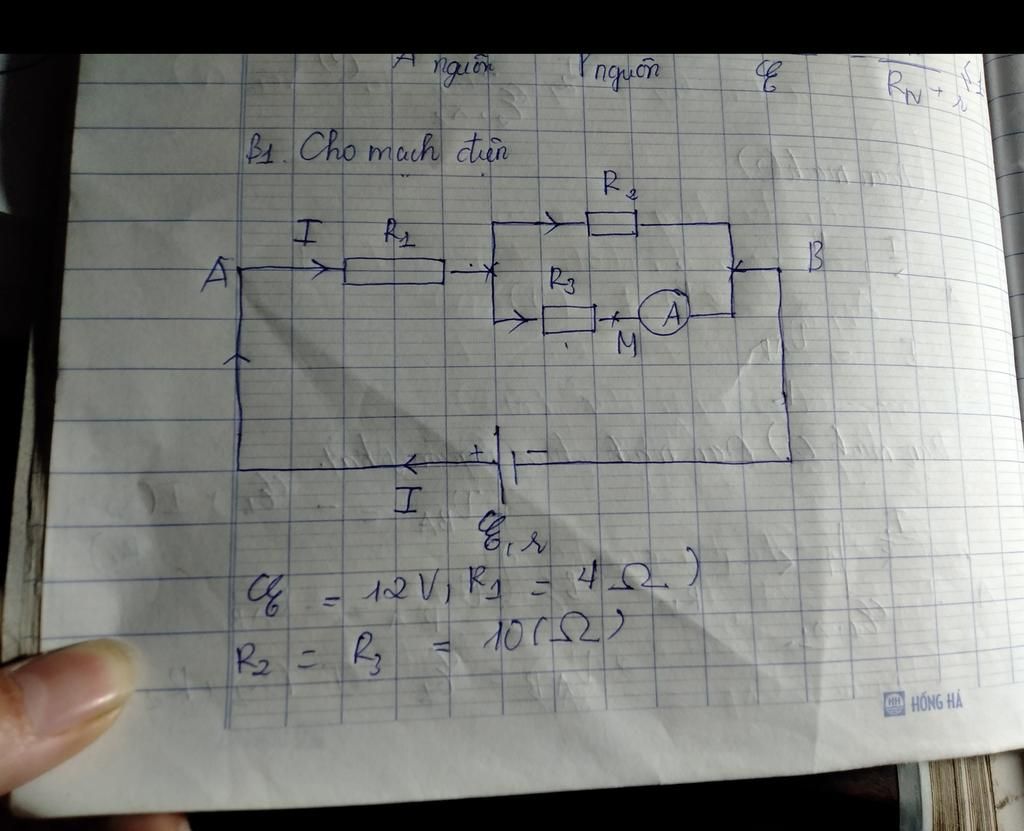 A nguồn P nguồn ℰ R_N + r
B1. Cho mạch điện
R₂
I R₁
A B
R₃
A
M
+ −
I
ℰ, r
ℰ = 12V, R₁ = 4 Ω)
R₂ = R₃ = 10(Ω)
HH HỒNG HÀ